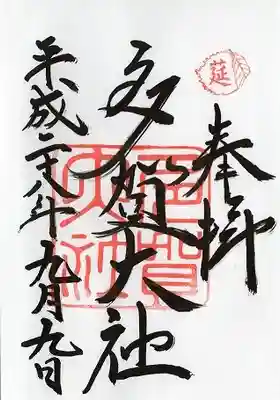 莚
奉拝
多賀大社
平成二十八年九月九日
多賀大社